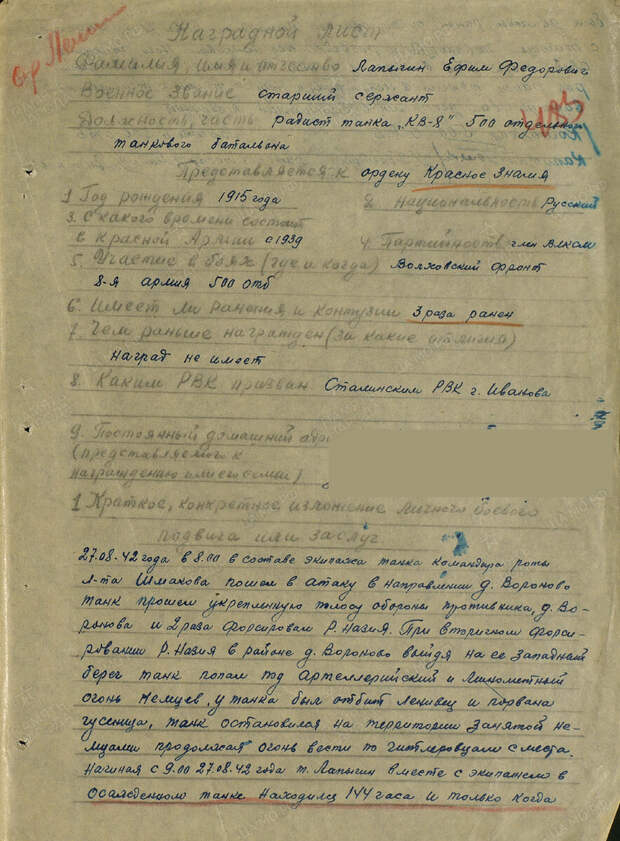 ор Ленин
Наградной лист
Фамилия, имя и отчество Лапыгин Ефим Федорович
Военное звание старший сержант
Должность, часть радист танка „КВ-8" 500 отдельного
танкового батальона
Представляется к ордену Красное Знамя
1 Год рождения 1915 года 2. Национальность Русский
3. С какого времени состоит
в Красной Армии с 1939 4. Партийность член ВЛКСМ
5. Участие в боях (где и когда) Волховский фронт
8-я армия 500 отб
6. Имеет ли ранения и контузии 3 раза ранен
7. Чем раньше награжден (за какие отличия)
наград не имеет
8. Каким РВК призван Сталинским РВК г. Иванова
9. Постоянный домашний адре
(представляемого к
награждению и его семьи)
1 Краткое, конкретное изложение личного боевого
подвига или заслуг
27.08.42 года в 8.00 в составе экипажа танка командира роты
л-та Шмакова пошел в атаку в направлении д. Вороново
танк прошел укрепленную полосу обороны противника, д. Во-
ронова и 2 раза форсировал р. Назия. При вторичном форси-
ровании р. Назия в районе д. Вороново выйдя на ее западный
берег танк попал под артеллерийский и минометный
огонь немцев, у танка был отбит ленивец и порвана
гусеница, танк остановился на территории занятой не-
мцами продолжая огонь вести по гитлеровцам с места.
Начиная с 9.00 27.08.42 года т. Лапыгин вместе с экипажем в
осажденном танке находился 144 часа и только когда